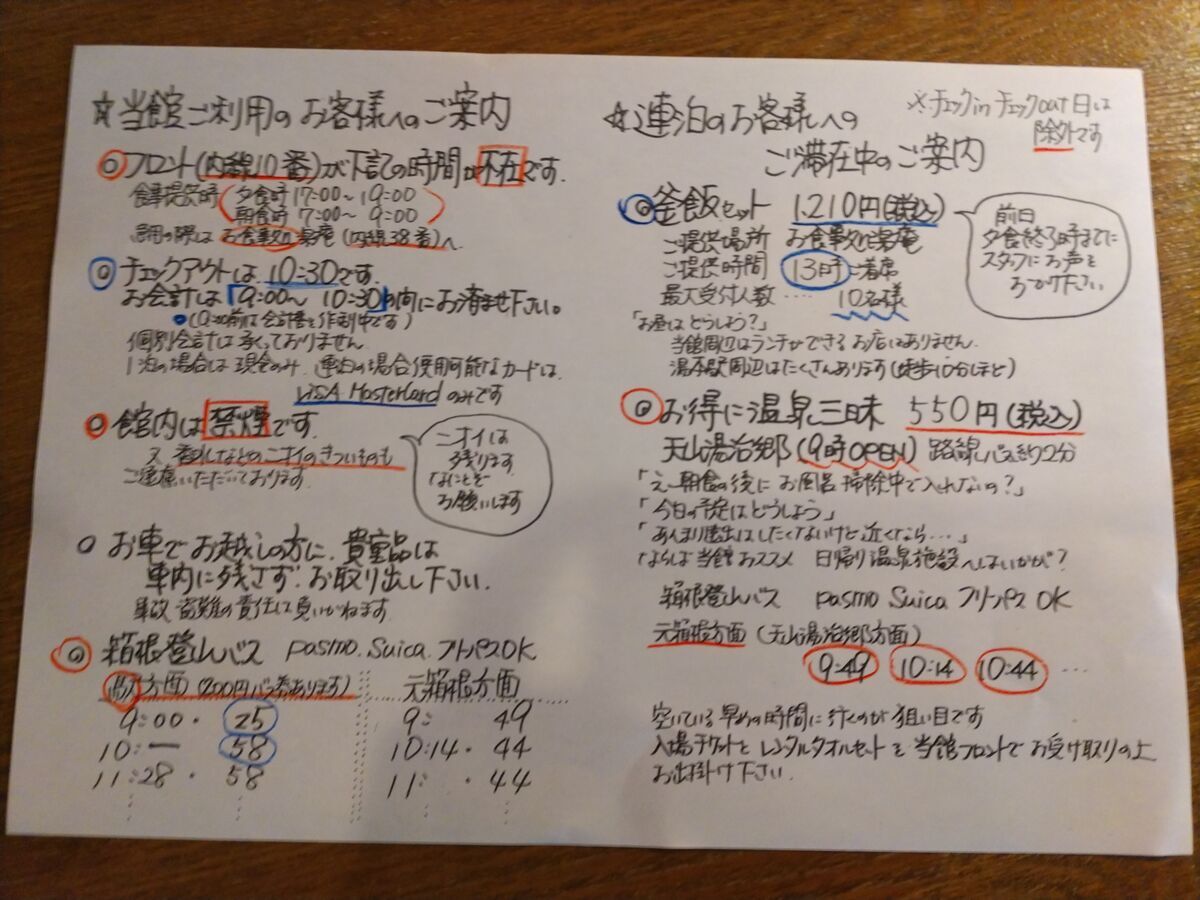 ☆当館ご利用のお客様へのご案内
◎フロント(内線10番)が下記の時間は不在です.
食事提供時 夕食時 17:00〜19:00
朝食時 7:00〜9:00
の際は お食事処楽庵(内線38番)へ
◎チェックアウトは 10:30です.
お会計は「9:00〜10:30」の間にお済ませ下さい。
●(9:00前は会計書を作制中です)
個別会計は承っておりません
1泊の場合は現金のみ 連泊の場合使用可能なカードは.
VISA Mastercardのみです
◎館内は禁煙です.
又香水などのニオイのきついものも
ご遠慮いただいております.
ニオイは
残ります
なにとぞ
お願いします
○お車でお越しの方に.貴重品は
車内に残さず.お取り出し下さい.
事故 盗難の責任は負いかねます
◎箱根登山バス pasmo.Suica.フリーパスOK
方面(200円バス券あります) 元箱根方面
9:00・25 9: 49
10:ー 58 10:14・44
11:28・58 11: ・44
☆連泊のお客様への
ご滞在中のご案内
※チェックinチェックout日は
除外です
◎釜飯セット 1.210円(税込)
ご提供場所 お食事処楽庵
ご提供時間 13時ご着席
最大受付人数‥‥10名様
前日
夕食終了時までに
スタッフにお声を
おかけ下さい
「お昼はどうしよう?」
当館周辺はランチができるお店はありません.
湯本駅周辺はたくさんあります(徒歩10分ほど)
◎お得に温泉三昧 550円(税込)
天山湯治郷(9時OPEN) 路線バスで約2分
「え、朝食の後にお風呂掃除中で入れないの?」
「今日の予定はどうしよう」
「あんまり遠出はしたくないけど近くなら…」
「ならば当館おススメ 日帰り温泉施設へはいかがが?
箱根登山バス pasmo.Suica フリーパスOK
元箱根方面(天山湯治郷方面)
9:49 10:14 10:44 …
空いている早めの時間に行くのが狙い目です
入場チケットとレンタルタオルセットを当館フロントでお受け取りの上
お出掛け下さい.